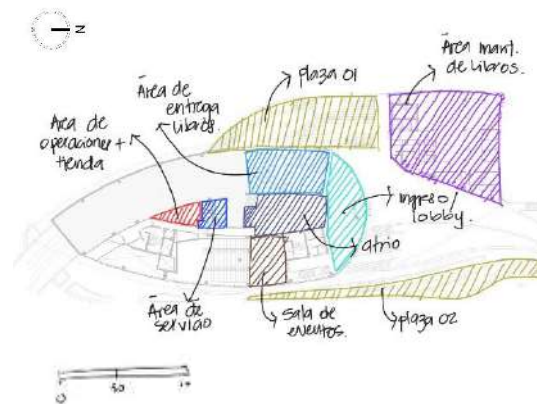 N
Área mant.
de Libros.
plaza 01
Área de
entrega
libros.
Area de
operaciones +
tienda
Ingreso/
lobby.
atrio
Área de
servicio
Sala de
eventos.
plaza 02
0